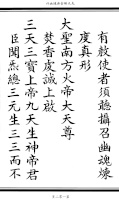 有赦使者須聽攝召幽魂煉
度真形
大聖南方火帝大天尊
焚香虔誠上啟
三天三寶上帝九天生神帝君
臣聞炁總三元生三三而不